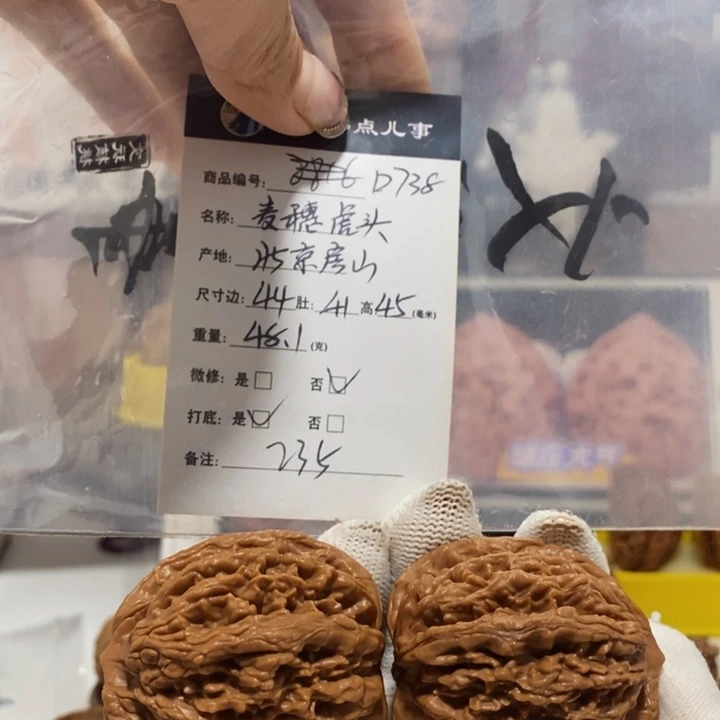 点儿事
商品编号: D738
名称: 麦穗虎头
产地: 北京房山
尺寸边: 44 肚: 41 高 45 (毫米)
重量: 48.1 (克)
微修: 是 否
打底: 是 否
备注: 235